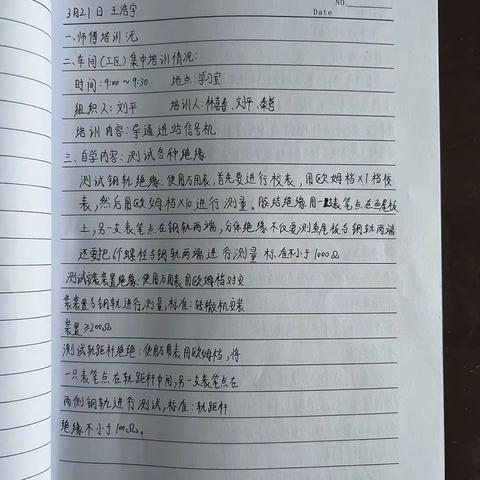 NO.
3月21日 王浩宇
Date
一、师傅培训:无
二、车间(工区)集中培训情况:
时间:9:00~9:30 地点:学习室
组织人:刘平 培训人:林喜春、刘平、秦哲
培训内容:导通进站信号机
三、自学内容:测试各种绝缘
测试钢轨绝缘:使用万用表,首先要进行校表,用欧姆档×1档校
表,然后用欧姆档×10进行测量。胶结绝缘用一支表笔点在鱼尾板
上,另一支表笔点在钢轨两端,分体绝缘不仅要测鱼尾板与钢轨两端
还要把6个螺栓与钢轨两端进行测量 标准不小于1000Ω
测试安装装置绝缘:使用万用表用欧姆档对安
装装置与钢轨进行测量,标准:转辙机安装
装置≥200Ω
测试轨距杆绝缘:使用万用表用欧姆档,将
一只表笔点在轨距杆中间,另一支表笔点在
两侧钢轨进行测试,标准:轨距杆
绝缘不小于100Ω。